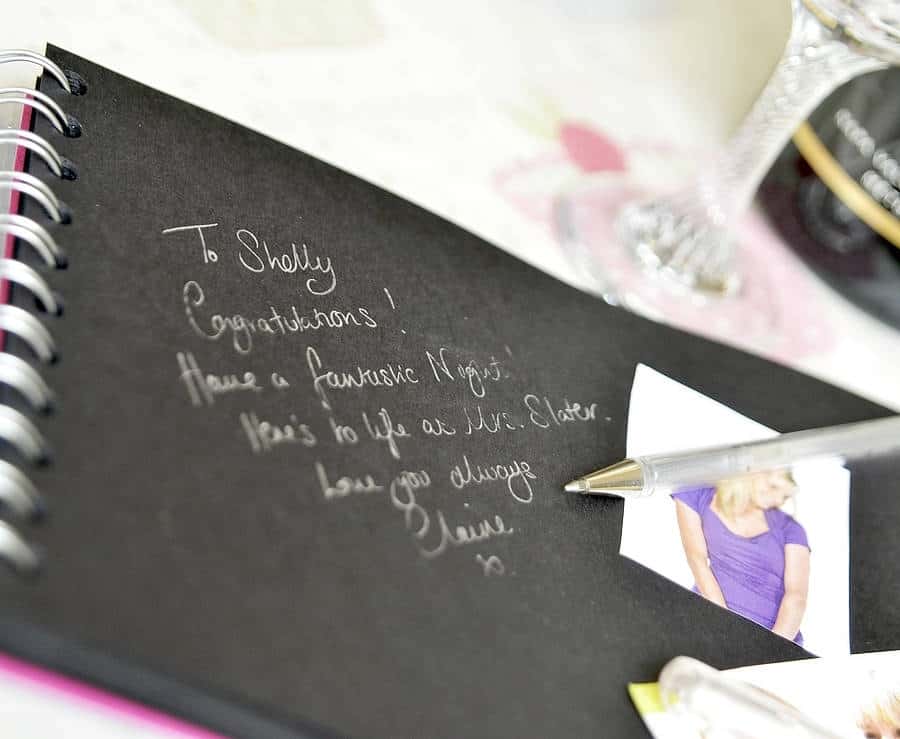 To Shelly
Congratulations!
Have a fantastic Night!
Here's to life as Mrs. Slater.
Love you always
Claire
x.